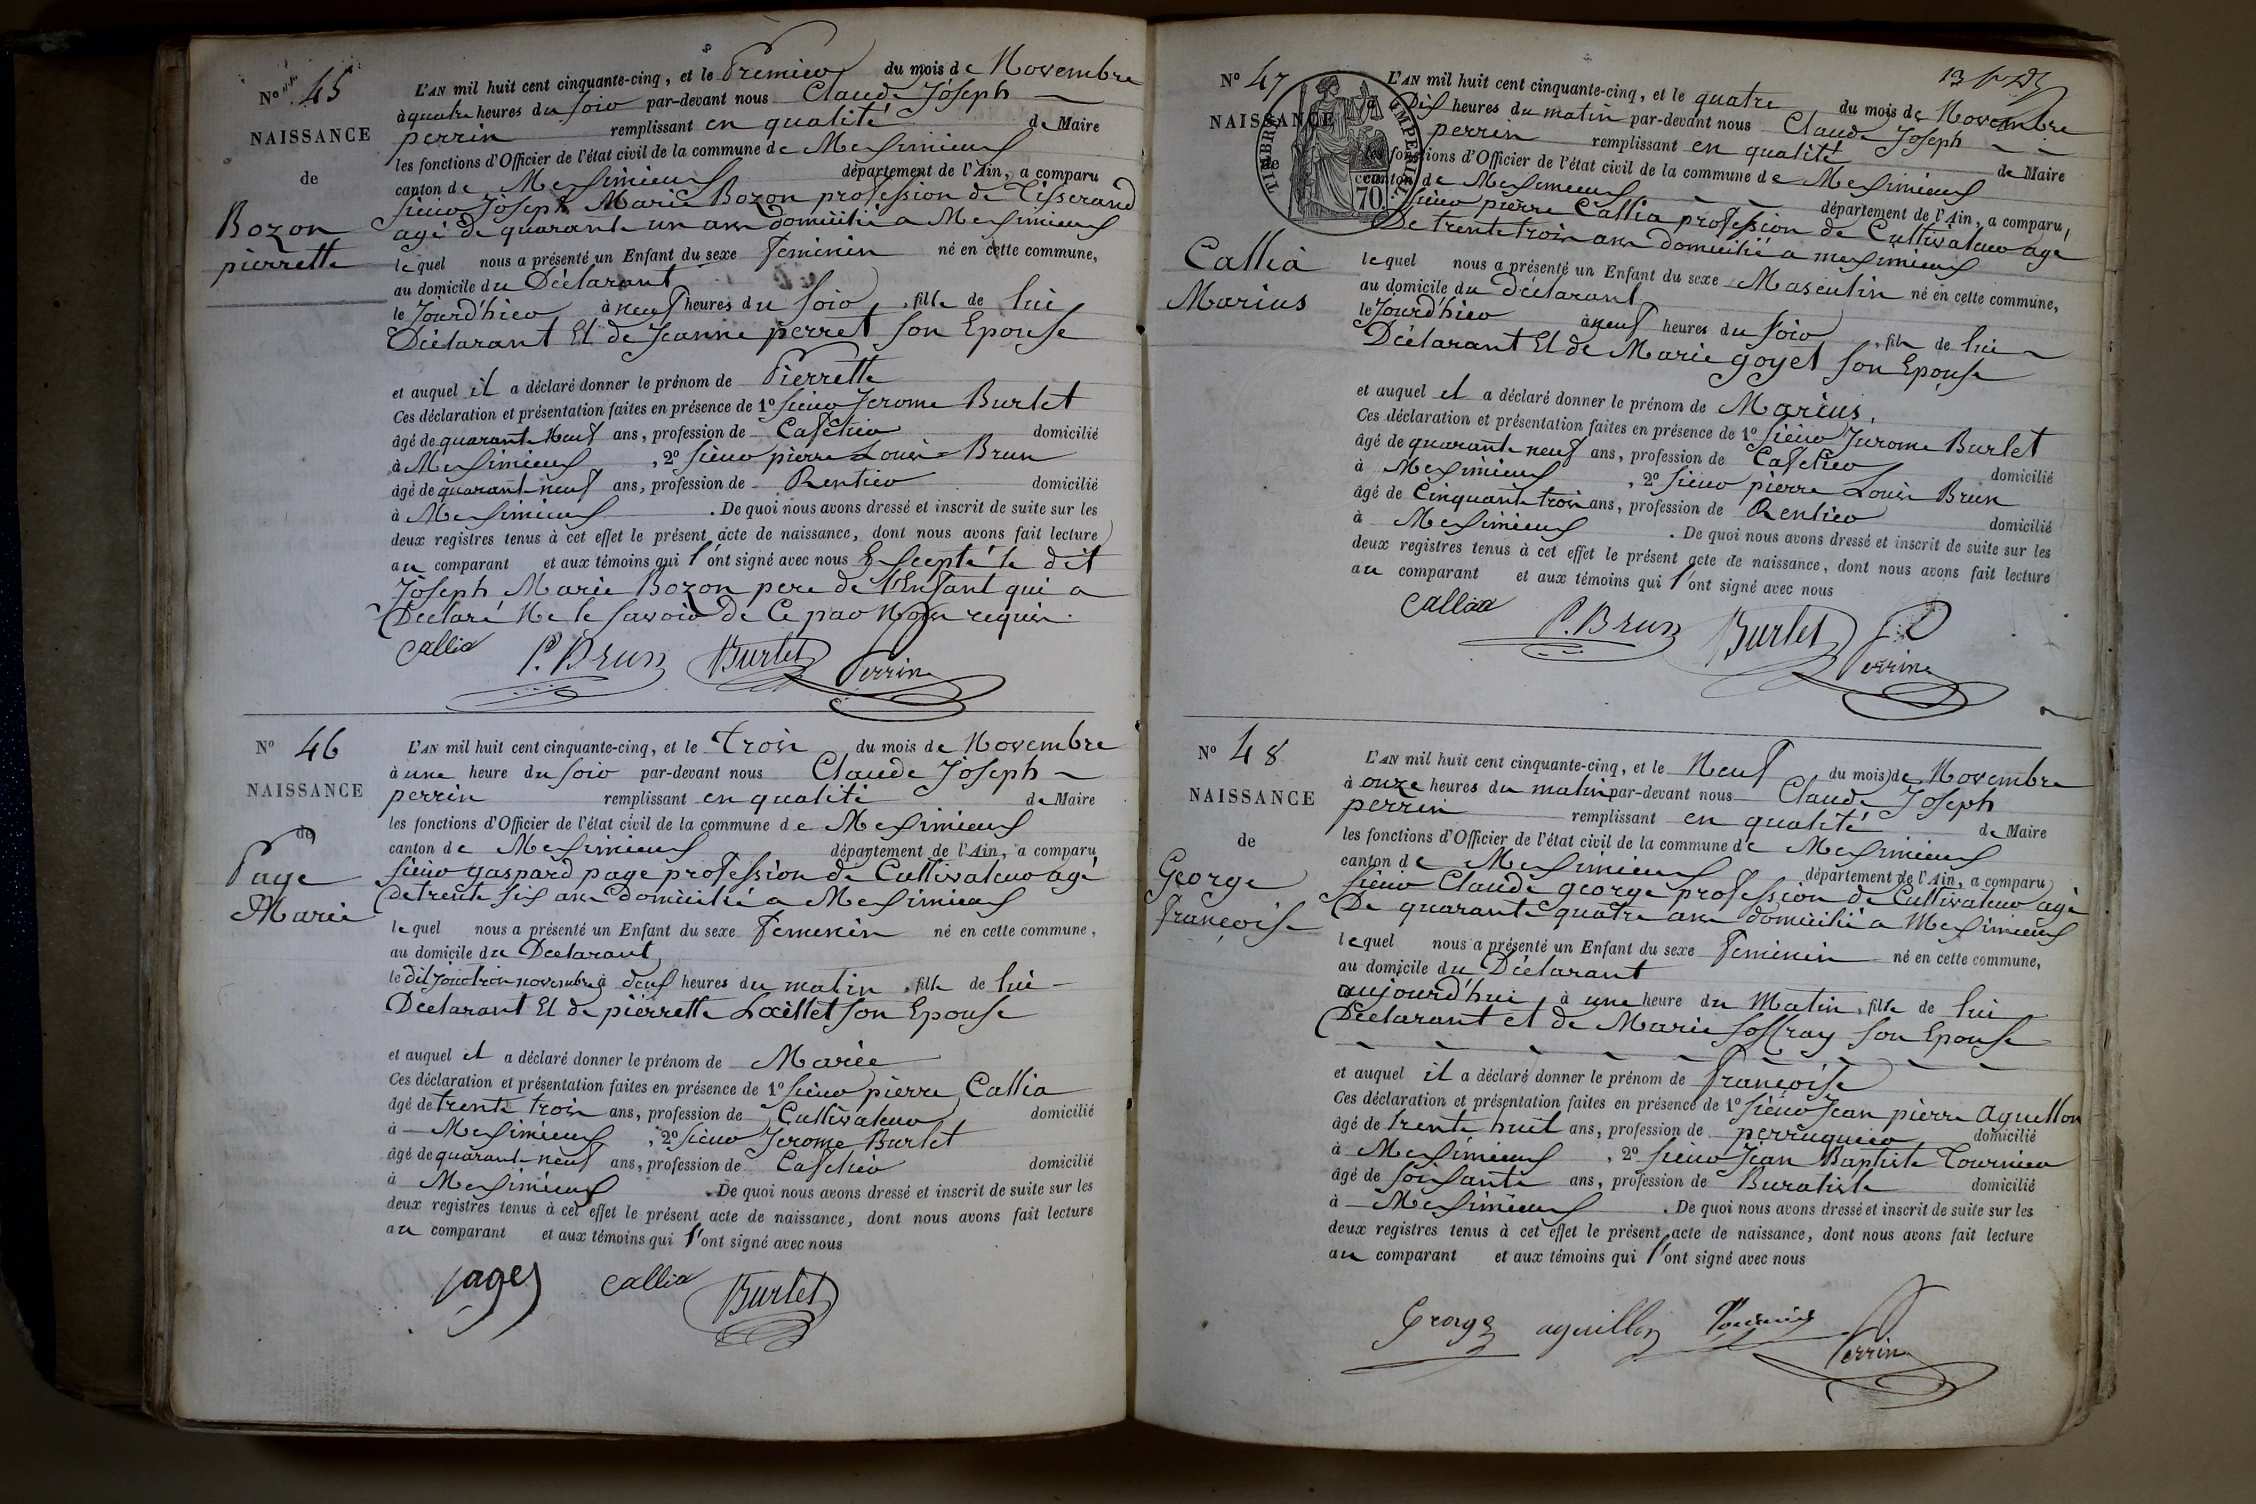 N° 45
NAISSANCE
de
Bozon
pierrette
L'AN mil huit cent cinquante-cinq, et le Premier du mois de Novembre
à quatre heures du soir par-devant nous Claude Joseph
perrin remplissant en qualité de Maire
les fonctions d'Officier de l'état civil de la commune de Meximieux
canton de Meximieux département de l'Ain, a comparu
sieur Joseph Marie Bozon profession de Tisserand
agé de quarante un ans domicilié a Meximieux
lequel nous a présenté un Enfant du sexe Feminin né en cette commune,
au domicile du Déclarant
le Jourd'hier à neuf heures du soir, fille de lui
Déclarant Et de Jeanne perret son Epouse
et auquel il a déclaré donner le prénom de Pierrette
Ces déclaration et présentation faites en présence de 1° sieur Jerome Burlet
âgé de quarante neuf ans, profession de Cafetier domicilié
à Meximieux, 2° sieur pierre Louis Brun
âgé de quarante neuf ans, profession de Rentier domicilié
à Meximieux. De quoi nous avons dressé et inscrit de suite sur les
deux registres tenus à cet effet le présent acte de naissance, dont nous avons fait lecture
au comparant et aux témoins qui l'ont signé avec nous Excepté le dit
Joseph Marie Bozon pere de l'Enfant qui a
Declaré Ne le savoir de Ce par Nous requis.
Callia P. Brun Burlet Perrin
N° 46
NAISSANCE
de
Page
Marie
L'AN mil huit cent cinquante-cinq, et le trois du mois de Novembre
à une heure du soir par-devant nous Claude Joseph
perrin remplissant en qualité de Maire
les fonctions d'Officier de l'état civil de la commune de Meximieux
canton de Meximieux département de l'Ain, a comparu
sieur gaspard page profession de Cultivateur agé
de trente six ans domicilié a Meximieux
lequel nous a présenté un Enfant du sexe Feminin né en cette commune,
au domicile du Declarant
le dit Jour trois novembre à deux heures du matin, fille de lui
Déclarant Et de pierrette Laillet son Epouse
et auquel il a déclaré donner le prénom de Marie
Ces déclaration et présentation faites en présence de 1° sieur pierre Callia
âgé de trente trois ans, profession de Cultivateur domicilié
à Meximieux, 2° sieur Jerome Burlet
âgé de quarante neuf ans, profession de Cafetier domicilié
à Meximieux. De quoi nous avons dressé et inscrit de suite sur les
deux registres tenus à cet effet le présent acte de naissance, dont nous avons fait lecture
au comparant et aux témoins qui l'ont signé avec nous
pages Callia Burlet
N° 47
NAISSANCE
de
Callia
Marius
TIMBRE IMPERIAL
70.
L'AN mil huit cent cinquante-cinq, et le quatre du mois de Novembre
à Dix heures du matin par-devant nous Claude Joseph
perrin remplissant en qualité de Maire
les fonctions d'Officier de l'état civil de la commune de Meximieux
canton de Meximieux département de l'Ain, a comparu,
sieur pierre Callia profession de Cultivateur agé
De trente trois ans domicilié a meximieux
lequel nous a présenté un Enfant du sexe Masculin né en cette commune,
au domicile du déclarant
le Jourd'hier à neuf heures du soir, fils de lui
Déclarant Et de Marie goyet son Epouse
et auquel il a déclaré donner le prénom de Marius,
Ces déclaration et présentation faites en présence de 1° sieur Jerome Burlet
âgé de quarante neuf ans, profession de Cafetier domicilié
à Meximieux, 2° sieur pierre Louis Brun
âgé de Cinquante trois ans, profession de Rentier domicilié
à Meximieux. De quoi nous avons dressé et inscrit de suite sur les
deux registres tenus à cet effet le présent acte de naissance, dont nous avons fait lecture
au comparant et aux témoins qui l'ont signé avec nous
Callia P. Brun Burlet Perrin
N° 48
NAISSANCE
de
George
françoise
L'AN mil huit cent cinquante-cinq, et le Neuf du mois de Novembre
à onze heures du matin par-devant nous Claude Joseph
perrin remplissant en qualité de Maire
les fonctions d'Officier de l'état civil de la commune de Meximieux
canton de Meximieux département de l'Ain, a comparu
sieur Claude george profession de Cultivateur agé
De quarante quatre ans domicilié a Meximieux
lequel nous a présenté un Enfant du sexe Feminin né en cette commune,
au domicile du Déclarant
aujourd'hui, à une heure du Matin, fille de lui
Déclarant et de Marie Soffray son Epouse
et auquel il a déclaré donner le prénom de françoise
Ces déclaration et présentation faites en présence de 1° sieur Jean pierre aguillon
âgé de trente huit ans, profession de perruquier domicilié
à Meximieux, 2° sieur Jean Baptiste Tournier
âgé de soixante ans, profession de Buraliste domicilié
à Meximieux. De quoi nous avons dressé et inscrit de suite sur les
deux registres tenus à cet effet le présent acte de naissance, dont nous avons fait lecture
au comparant et aux témoins qui l'ont signé avec nous
George aguillon Tournier Perrin